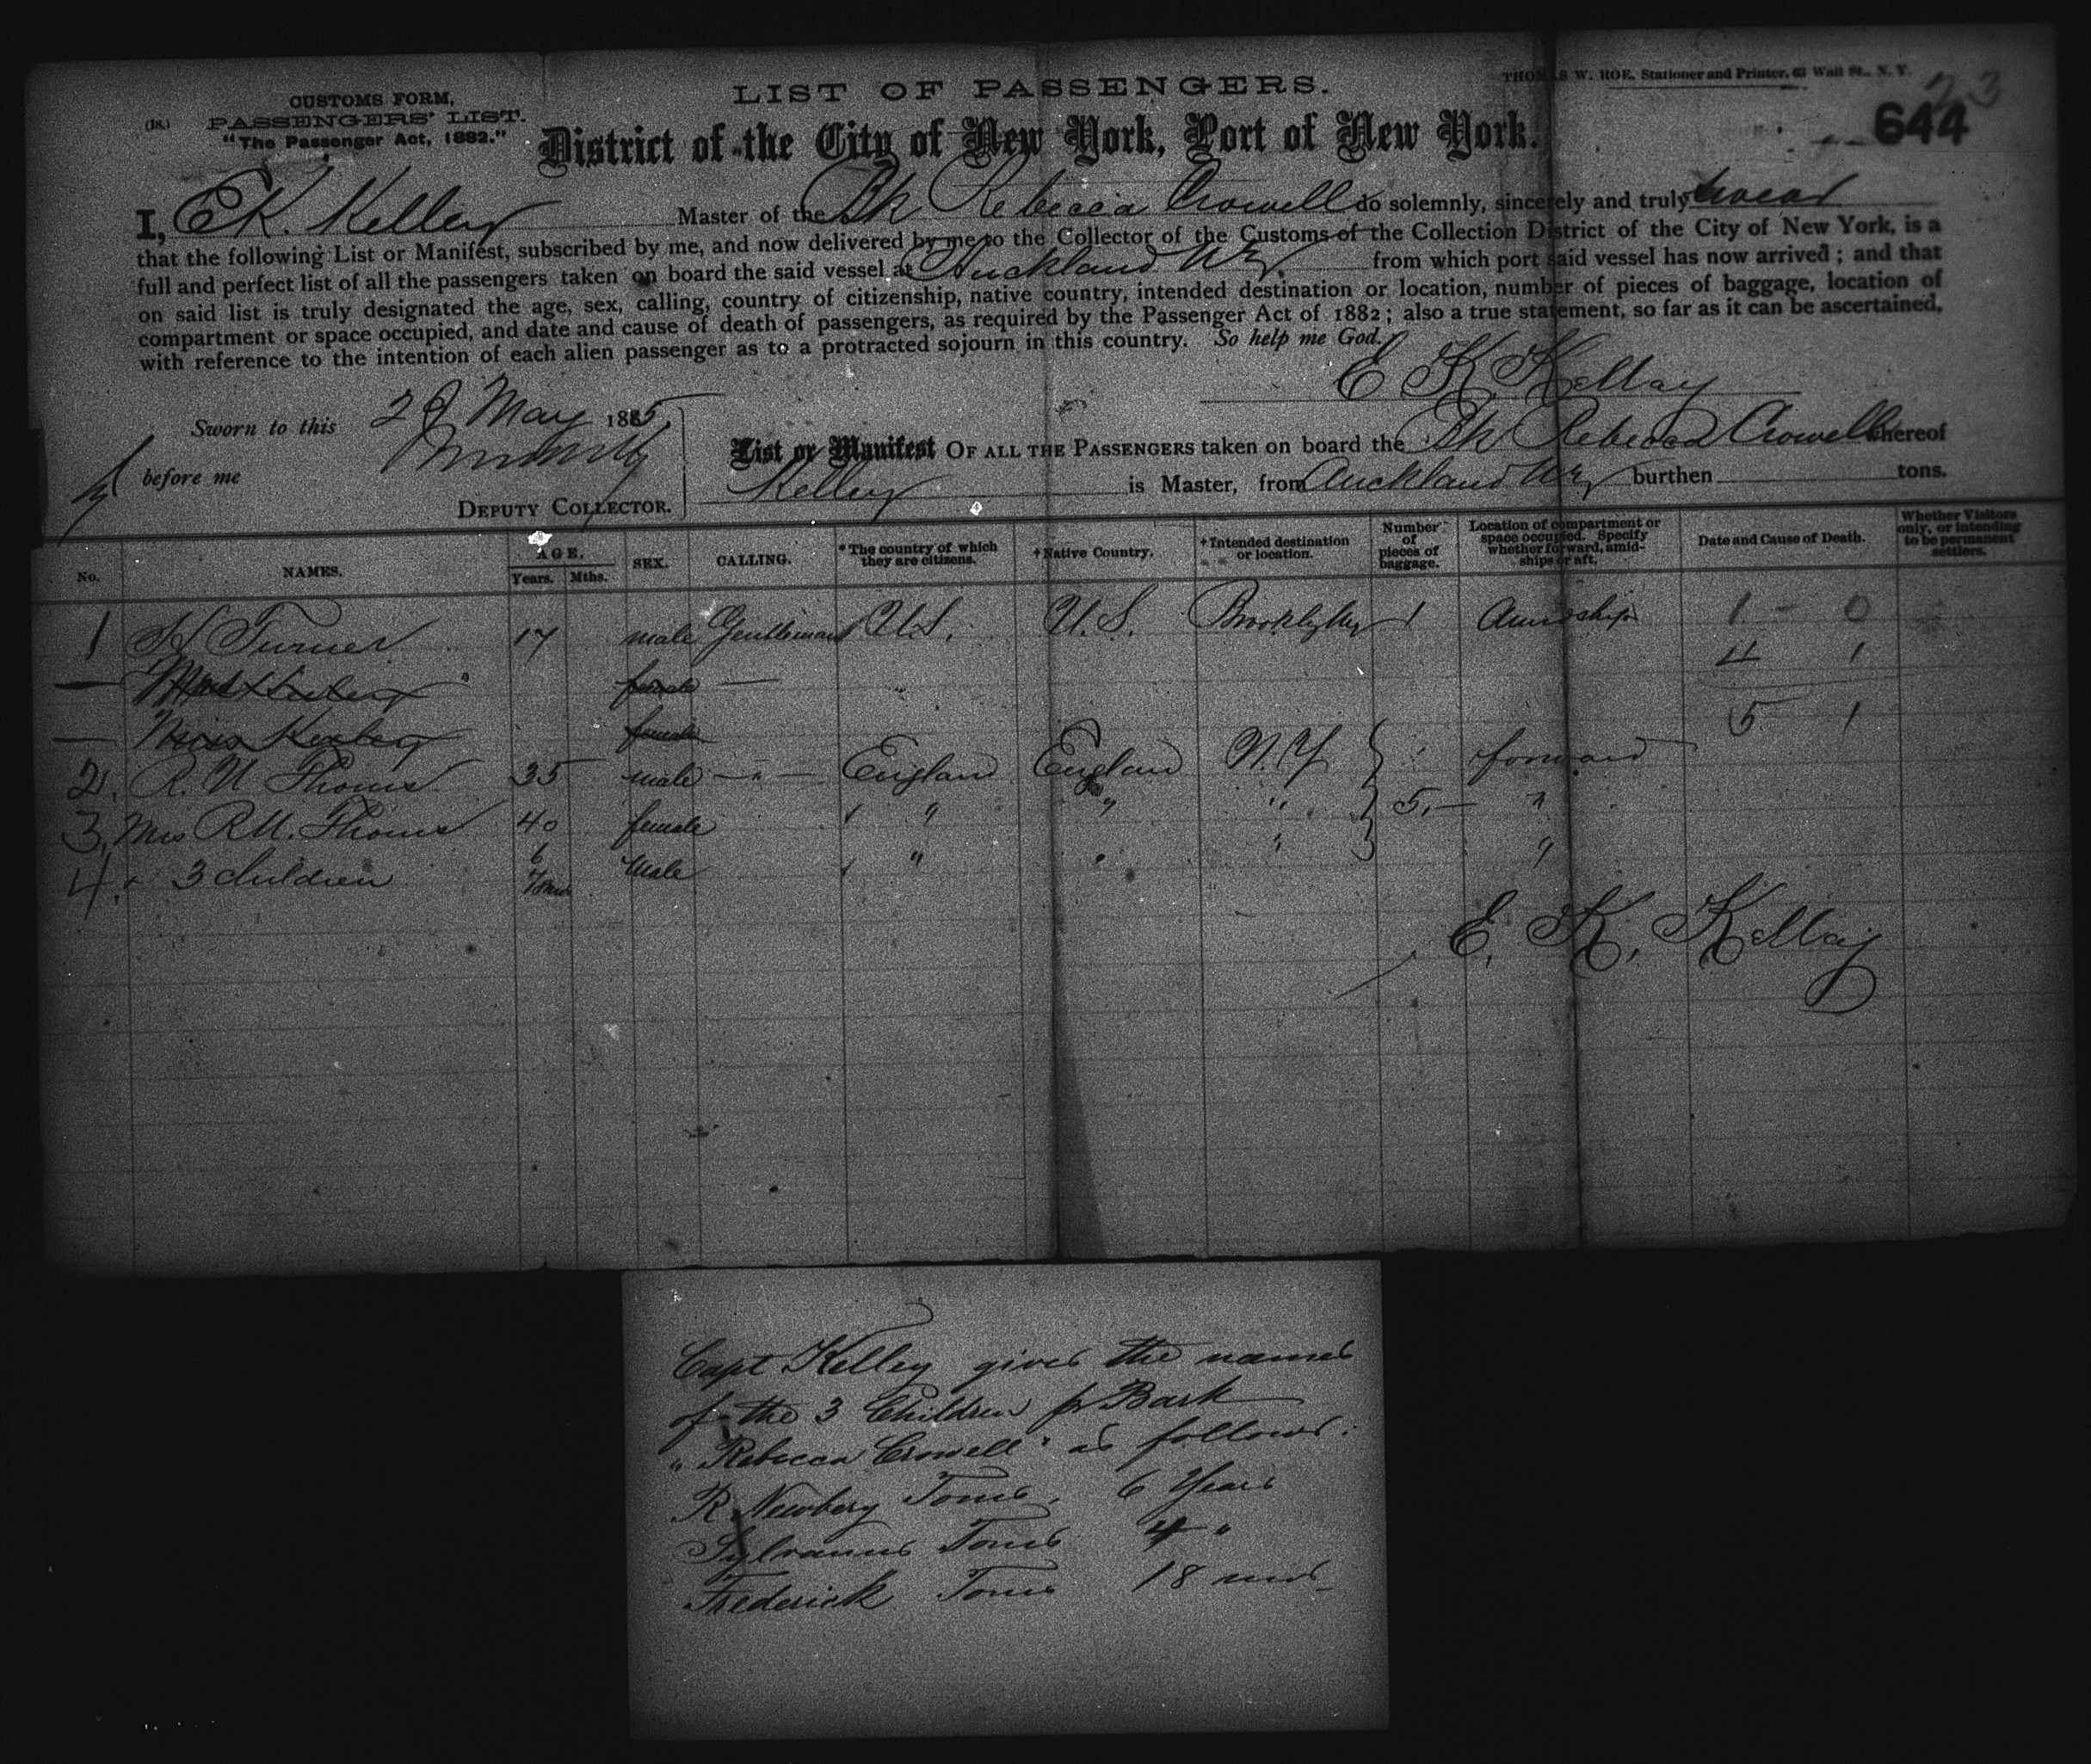 THOMAS W. ROE, Stationer and Printer, 63 Wall St., N. Y.
23
644
CUSTOMS FORM,
(18.) PASSENGERS' LIST.
"The Passenger Act, 1882."
LIST OF PASSENGERS.
District of the City of New York, Port of New York.
I, E K. Kelley Master of the Bk Rebecca Crowell do solemnly, sincerely and truly swear
that the following List or Manifest, subscribed by me, and now delivered by me to the Collector of the Customs of the Collection District of the City of New York, is a
full and perfect list of all the passengers taken on board the said vessel at Auckland from which port said vessel has now arrived; and that
on said list is truly designated the age, sex, calling, country of citizenship, native country, intended destination or location, number of pieces of baggage, location of
compartment or space occupied, and date and cause of death of passengers, as required by the Passenger Act of 1882; also a true statement, so far as it can be ascertained,
with reference to the intention of each alien passenger as to a protracted sojourn in this country. So help me God.
E K Kelley
Sworn to this 29 May 1885
before me
DEPUTY COLLECTOR.
List or Manifest OF ALL THE PASSENGERS taken on board the Bk Rebecca Crowell whereof
Kelley is Master, from Auckland burthen tons.
No. NAMES. AGE. Years. Mths. SEX. CALLING. *The country of which they are citizens. †Native Country. †Intended destination or location. Number of pieces of baggage. Location of compartment or space occupied. Specify whether forward, amidships or aft. Date and Cause of Death. Whether Visitors only, or intending to be permanent settlers.
1 H Turner 17 male Gentleman U.S. U.S. Brooklyn 1 Amidships 1 - 0
— female — 4 1
— Miss female 5 1
2. R. N Thoms 35 male — " — England England N.Y forward
3. Mrs R N. Thoms 40 female " " " 5. — "
4. " 3 children 6 4 18 mos Male " " " "
E. K. Kelley
Capt Kelley gives the names
of the 3 Children pr Bark
"Rebecca Crowell" as follows:
R Newbery Toms, 6 Years
Sylvanus Toms 4 "
Frederick Toms 18 mos